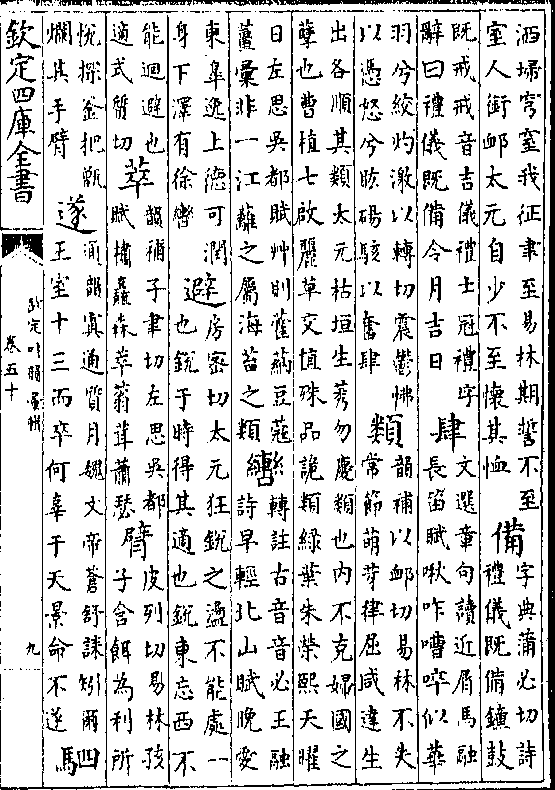 洒埽穹窒我征聿至易林期誓不至
室人銜䘏太元自少不至懷其恤
備
字典蒲必切詩
禮儀既備鐘鼓
既戒戒音吉儀禮士冠禮字
辭曰禮儀既備令月吉日
肆
文選章句讀近屑馬融
長笛賦啾咋嘈啐似華
羽兮絞灼激以轉切震鬱怫
以憑怒兮耾碭駭以奮肆
類
韻補以䘏切易林不失
常節萌芽律屈咸達生
出各順其類太元枯垣生莠勿慶類也内不克婦國之
孽也曹植七啟麗草交植殊品詭類緑葉朱榮熙天曜
日左思吳都賦艸則藿蒳豆蔻
薑彙非一江蘺之屬海苔之類
轡
轉註古音音必王融
詩早輕北山賦晚愛
東臯逸上德可潤
身下澤有徐轡
避
房密切太元狂銳之盪不能處一
也銳于時得其適也銳東忘西不
能迴避也
適式質切
萃
韻補子聿切左思吳都
賦㯶蠭森萃蓊茸蕭瑟
臂
皮列切易林孩
子含餌為利所
悅探釜把甑
爛其手臂
遂
通韻寘通質月魏文帝蒼舒誄矧爾四
王室十三而卒何辜于天景命不遂馬
欽定四庫全書
欽定叶韻彙輯
卷五十
九